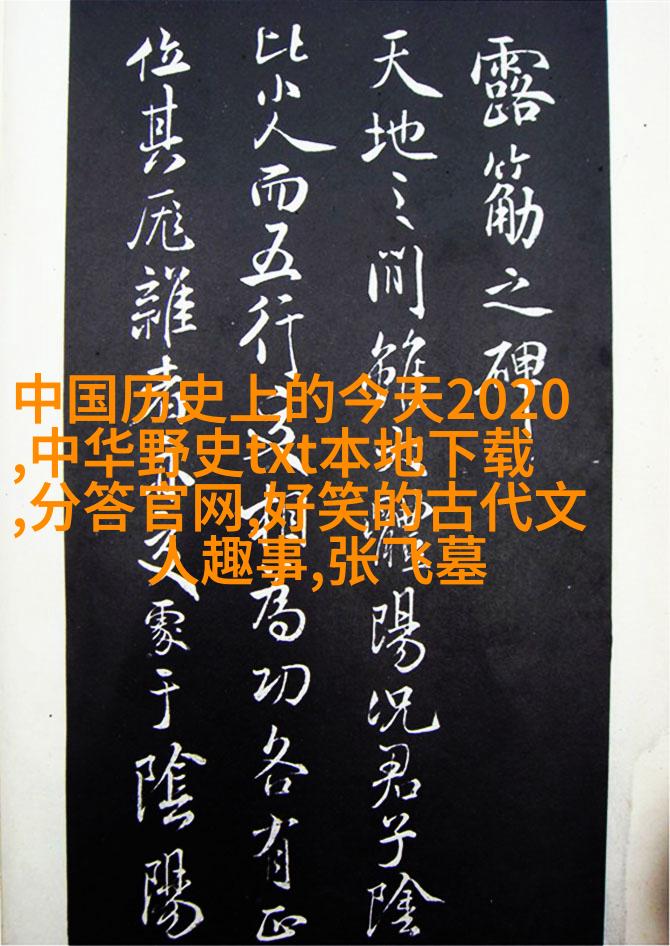 露筋之碑
天地之間雖體陽況君子陰
比小人而五行迭相為功各有正
位其厖雜者于陰陽
中国历史上的今天2020
,中华野史txt本地下载
,分答官网,好笑的古代文
人趣事,张飞墓